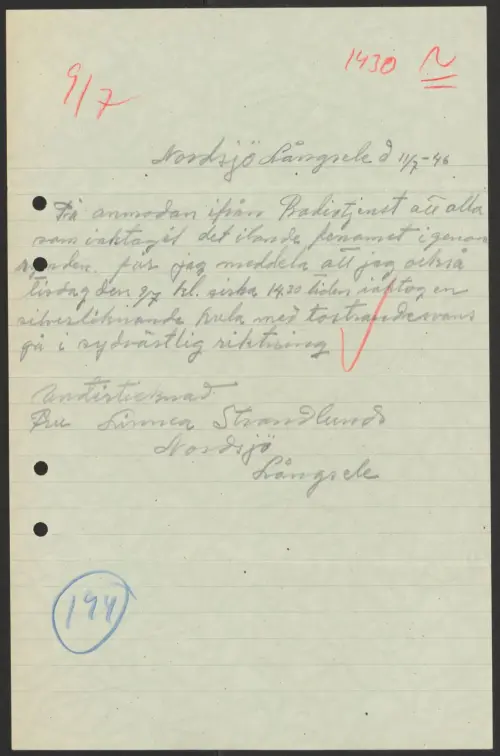 9/7
1430 N
Nordsjö Långsele d 11/7-46
På anmodan ifrån Radiotjenst att alla
som iakttagit det ilande fenomet i genom
rymden. får jag meddela att jag också
tisdag den 9/7 kl. sirka 14.30 tiden iaktog en
silverliknande kula med svans
gå i sydvästlig riktning
Undertecknad
Fru Linnea Strandlund
Nordsjö
Långsele
194